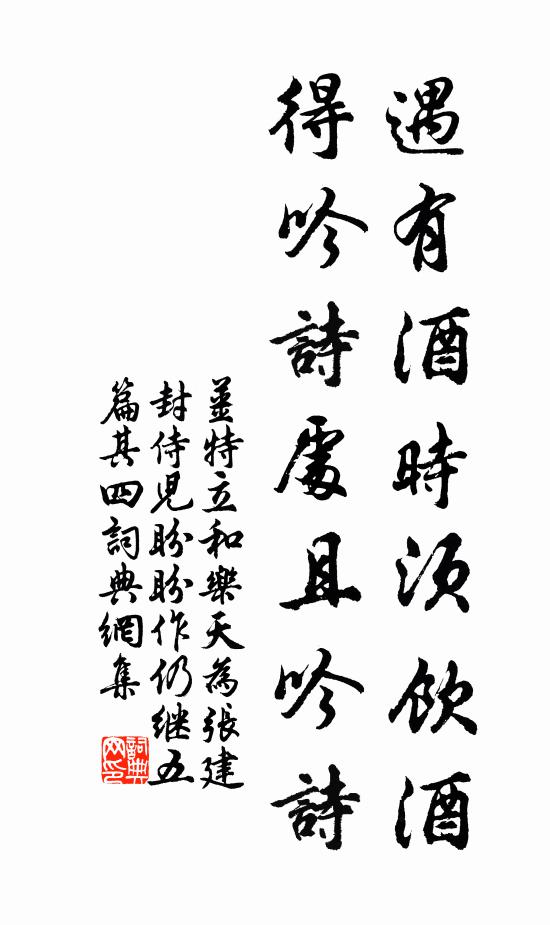 遇有酒時須飲酒
得吟詩處且吟詩
姜特立和樂天為張建
封侍兒盼盼作仍继五
篇其四詞典網集
詞典網印